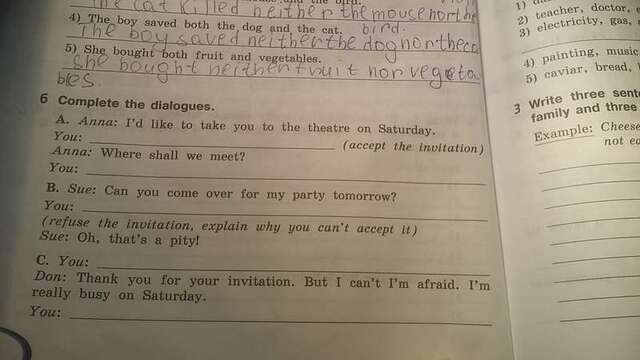 The cat killed neither the mouse nor the
4) The boy saved both the dog and the cat. bird.
The boy saved neither the dog nor the ca
5) She bought both fruit and vegetables.
She bought neither fruit nor vegeta
bles.
6 Complete the dialogues.
A. Anna: I'd like to take you to the theatre on Saturday.
You: (accept the invitation)
Anna: Where shall we meet?
You:
B. Sue: Can you come over for my party tomorrow?
You:
(refuse the invitation, explain why you can't accept it)
Sue: Oh, that's a pity!
C. You:
Don: Thank you for your invitation. But I can't I'm afraid. I'm
really busy on Saturday.
You:
1)
2) teacher, doctor,
3) electricity, gas,
4) painting, music
5) caviar, bread,
3 Write three sent
family and three
Example: Cheese
not ea